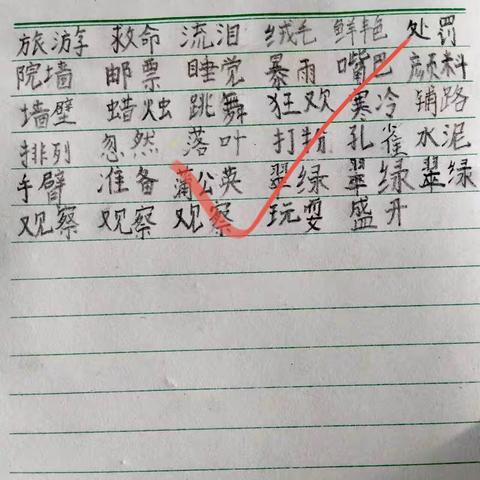 旅游 救命 流泪 绒毛 鲜艳 处罚
院墙 邮票 睡觉 暴雨 嘴巴 颜料
墙壁 蜡烛 跳舞 狂欢 寒冷 铺路
排列 忽然 落叶 打扮 孔雀 水泥
手臂 准备 蒲公英 翠绿 翠绿 翠绿
观察 观察 观察 玩耍 盛开